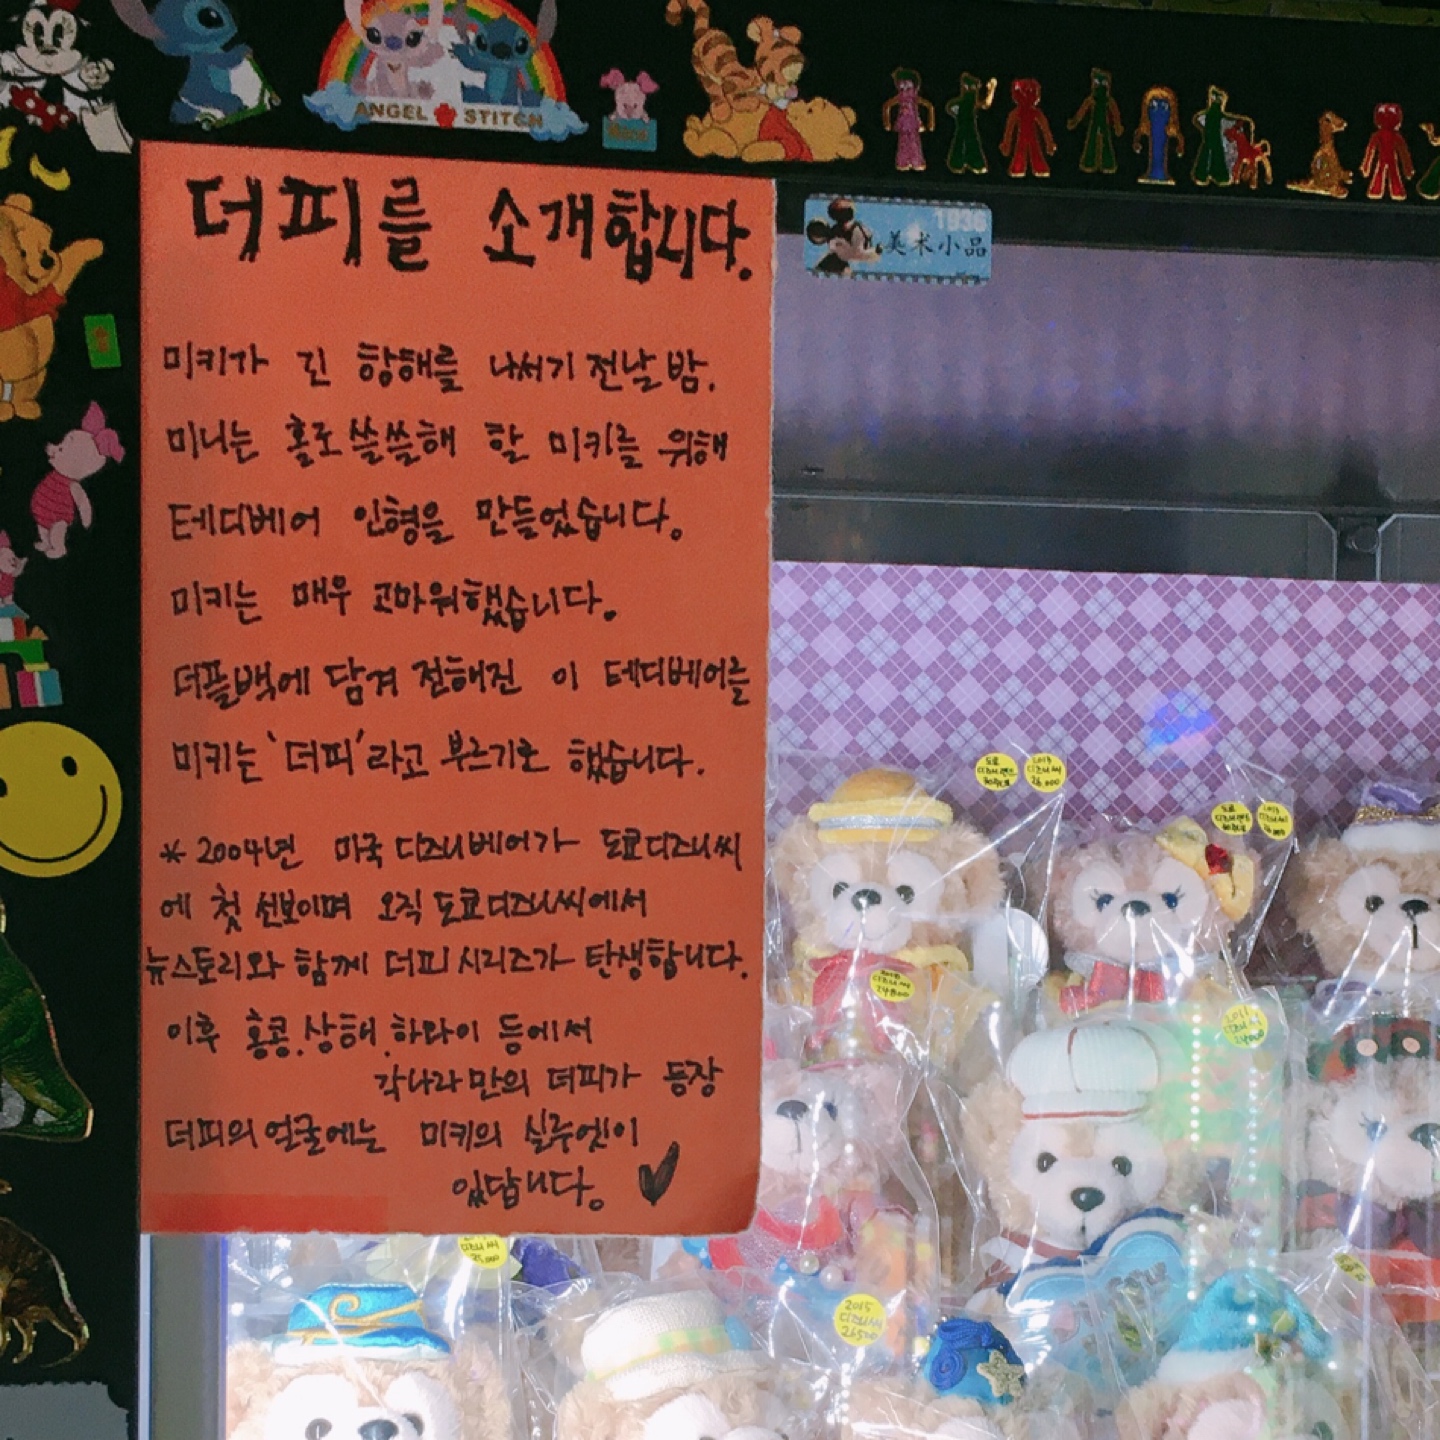 ANGEL STITCH
더피를 소개합니다.
미키가 긴 항해를 나서기 전날 밤.
미니는 홀로 쓸쓸해 할 미키를 위해
테디베어 인형을 만들었습니다.
미키는 매우 고마워했습니다.
더플백에 담겨 전해진 이 테디베어를
미키는 '더피'라고 부르기로 했습니다.
* 2004년 미국 디즈니베어가 도쿄디즈니씨
에 첫 선보이며 오직 도쿄디즈니씨에서
뉴스토리와 함께 더피 시리즈가 탄생합니다.
이후 홍콩.상해.하와이 등에서
각나라만의 더피가 등장
더피의 얼굴에는 미키의 실루엣이
있답니다.
1936
美术小品
2013
디즈니씨
26.000
2015
디즈니씨
26500